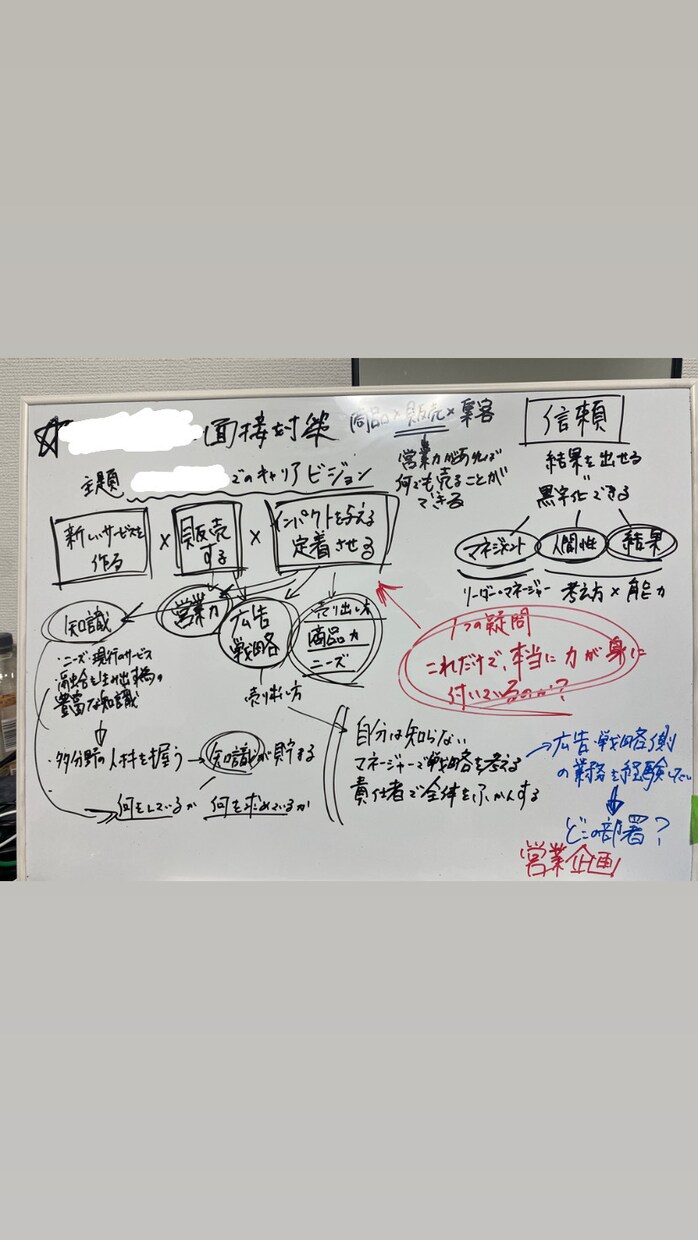 面接対策
商品×販売×集客
営業力があれば
何でも売ることが
できる
信頼
結果を出せる
＝
黒字化できる
マネジメント 人間性 結果
リーダー・マネージャー 考え方×能力
主題 でのキャリアビジョン
新しいサービスを
作る
×
販売
する
×
インパクトを与える
定着させる
知識
営業力
広告
戦略
売り出し方
商品力
ニーズ
売り出し方
・ニーズ・現行のサービス
豊富な知識
・多分野の人材を握う→知識が貯まる
何をしているか 何を求めているか
1つの疑問
これだけで、本当に力が身に
付いているのか？
自分は知らない
マネージャーで戦略を考える
責任者で全体をふかんする
→広告・戦略側
の業務を経験してい
どこの部署？
営業企画